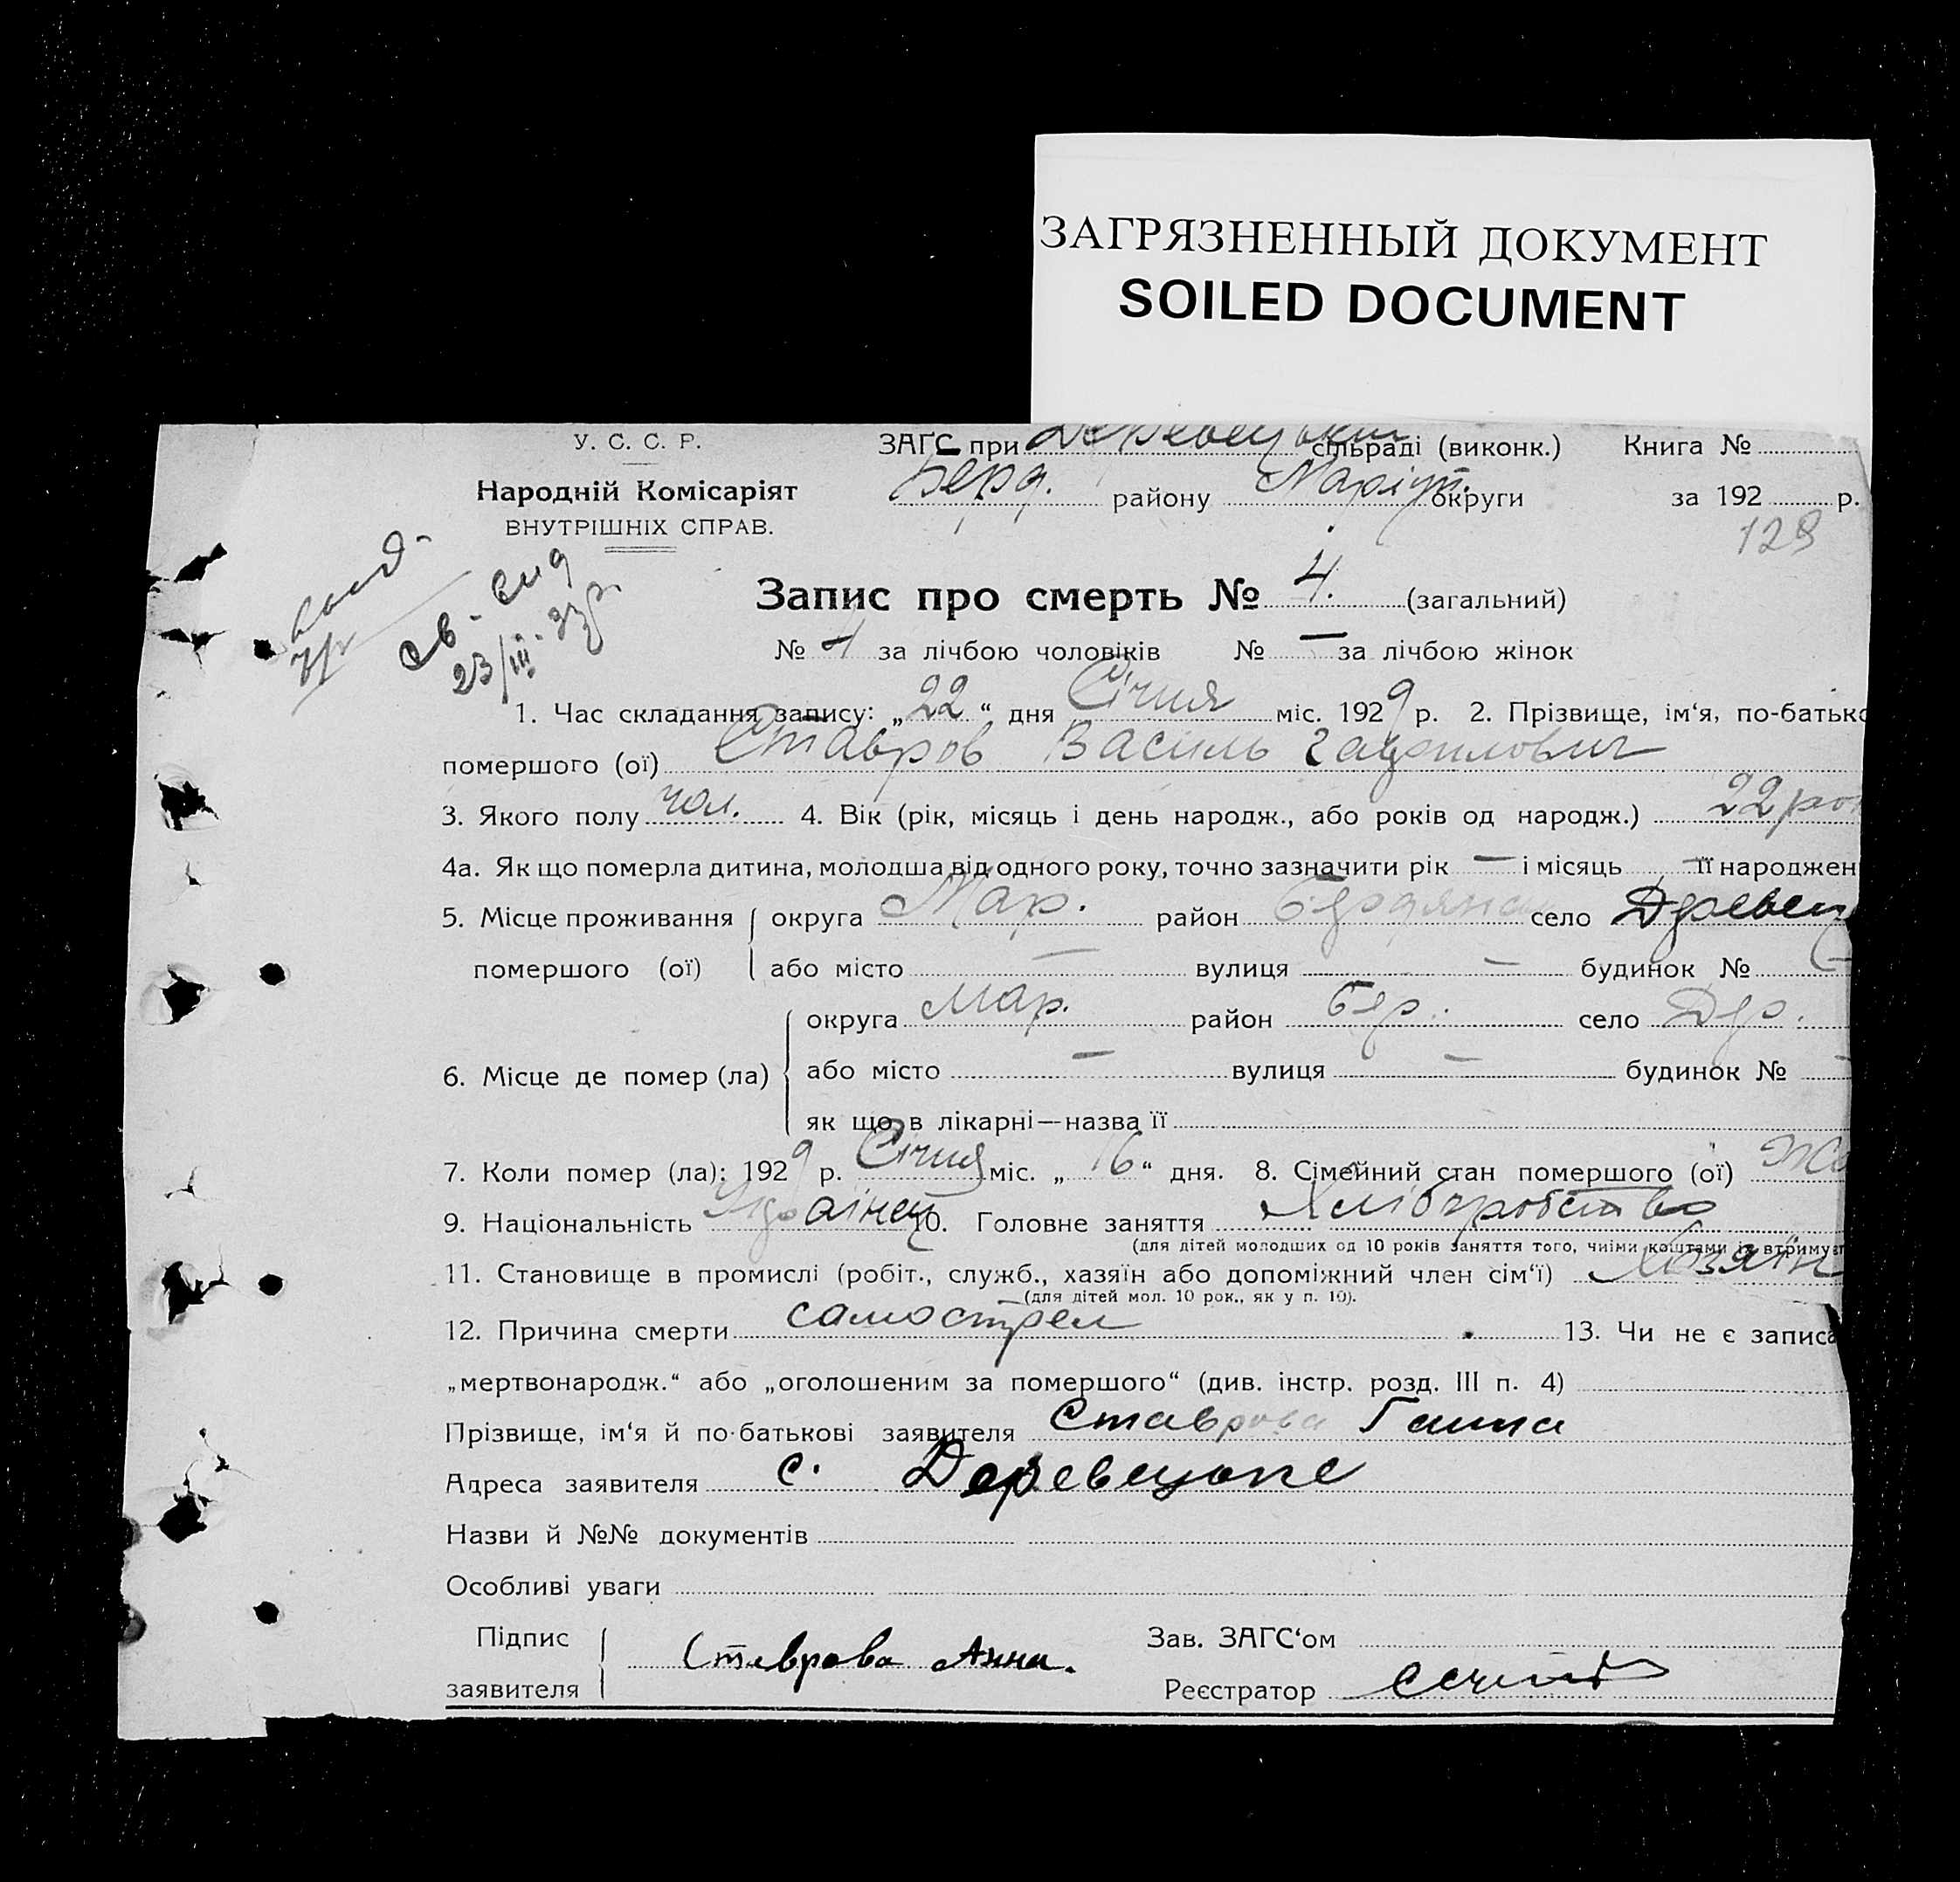 ЗАГРЯЗНЕННЫЙ ДОКУМЕНТ
SOILED DOCUMENT
У. С. С. Р.
Народній Комісаріят
ВНУТРІШНІХ СПРАВ.
ЗАГС при сільраді (виконк.) Книга №
Берд. району Маріуп. округи за 192 р.
129
св-смд
23/III-33р.
Запис про смерть № 4. (загальний)
№ 4 за лічбою чоловіків № — за лічбою жінок
1. Час складання запису: „22“ дня Січня міс. 1929 р. 2. Прізвище, ім‘я, по-батько
помершого (ої) Ставров Василь
3. Якого полу чол. 4. Вік (рік, місяць і день народж., або років од народж.) 22 рок
4а. Як що померла дитина, молодша від одного року, точно зазначити рік — і місяць — її народжен
5. Місце проживання округа Мар. район село Деревец
помершого (ої) або місто — вулиця — будинок №
округа Мар. район Бер. село Дер.
6. Місце де помер (ла) або місто — вулиця — будинок №
як що в лікарні—назва її
7. Коли помер (ла): 1929 р. Січня міс. „16“ дня. 8. Сімейний стан помершого (ої) Жо
9. Національність Украінец 10. Головне заняття Хліборобство
(для дітей молодших од 10 років заняття того, чиїми коштами їх втримує
11. Становище в промислі (робіт., служб., хазяїн або допоміжний член сім‘ї) Хозяїн
(для дітей мол. 10 рок., як у п. 10).
12. Причина смерти самострел 13. Чи не є записа
„мертвонародж.“ або „оголошеним за помершого“ (див. інстр. розд. III п. 4)
Прізвище, ім‘я й по-батькові заявителя Ставрова Ганна
Адреса заявителя с.
Назви й №№ документів
Особливі уваги
Підпис Зав. ЗАГС‘ом
Ставрова Анна.
заявителя Реєстратор